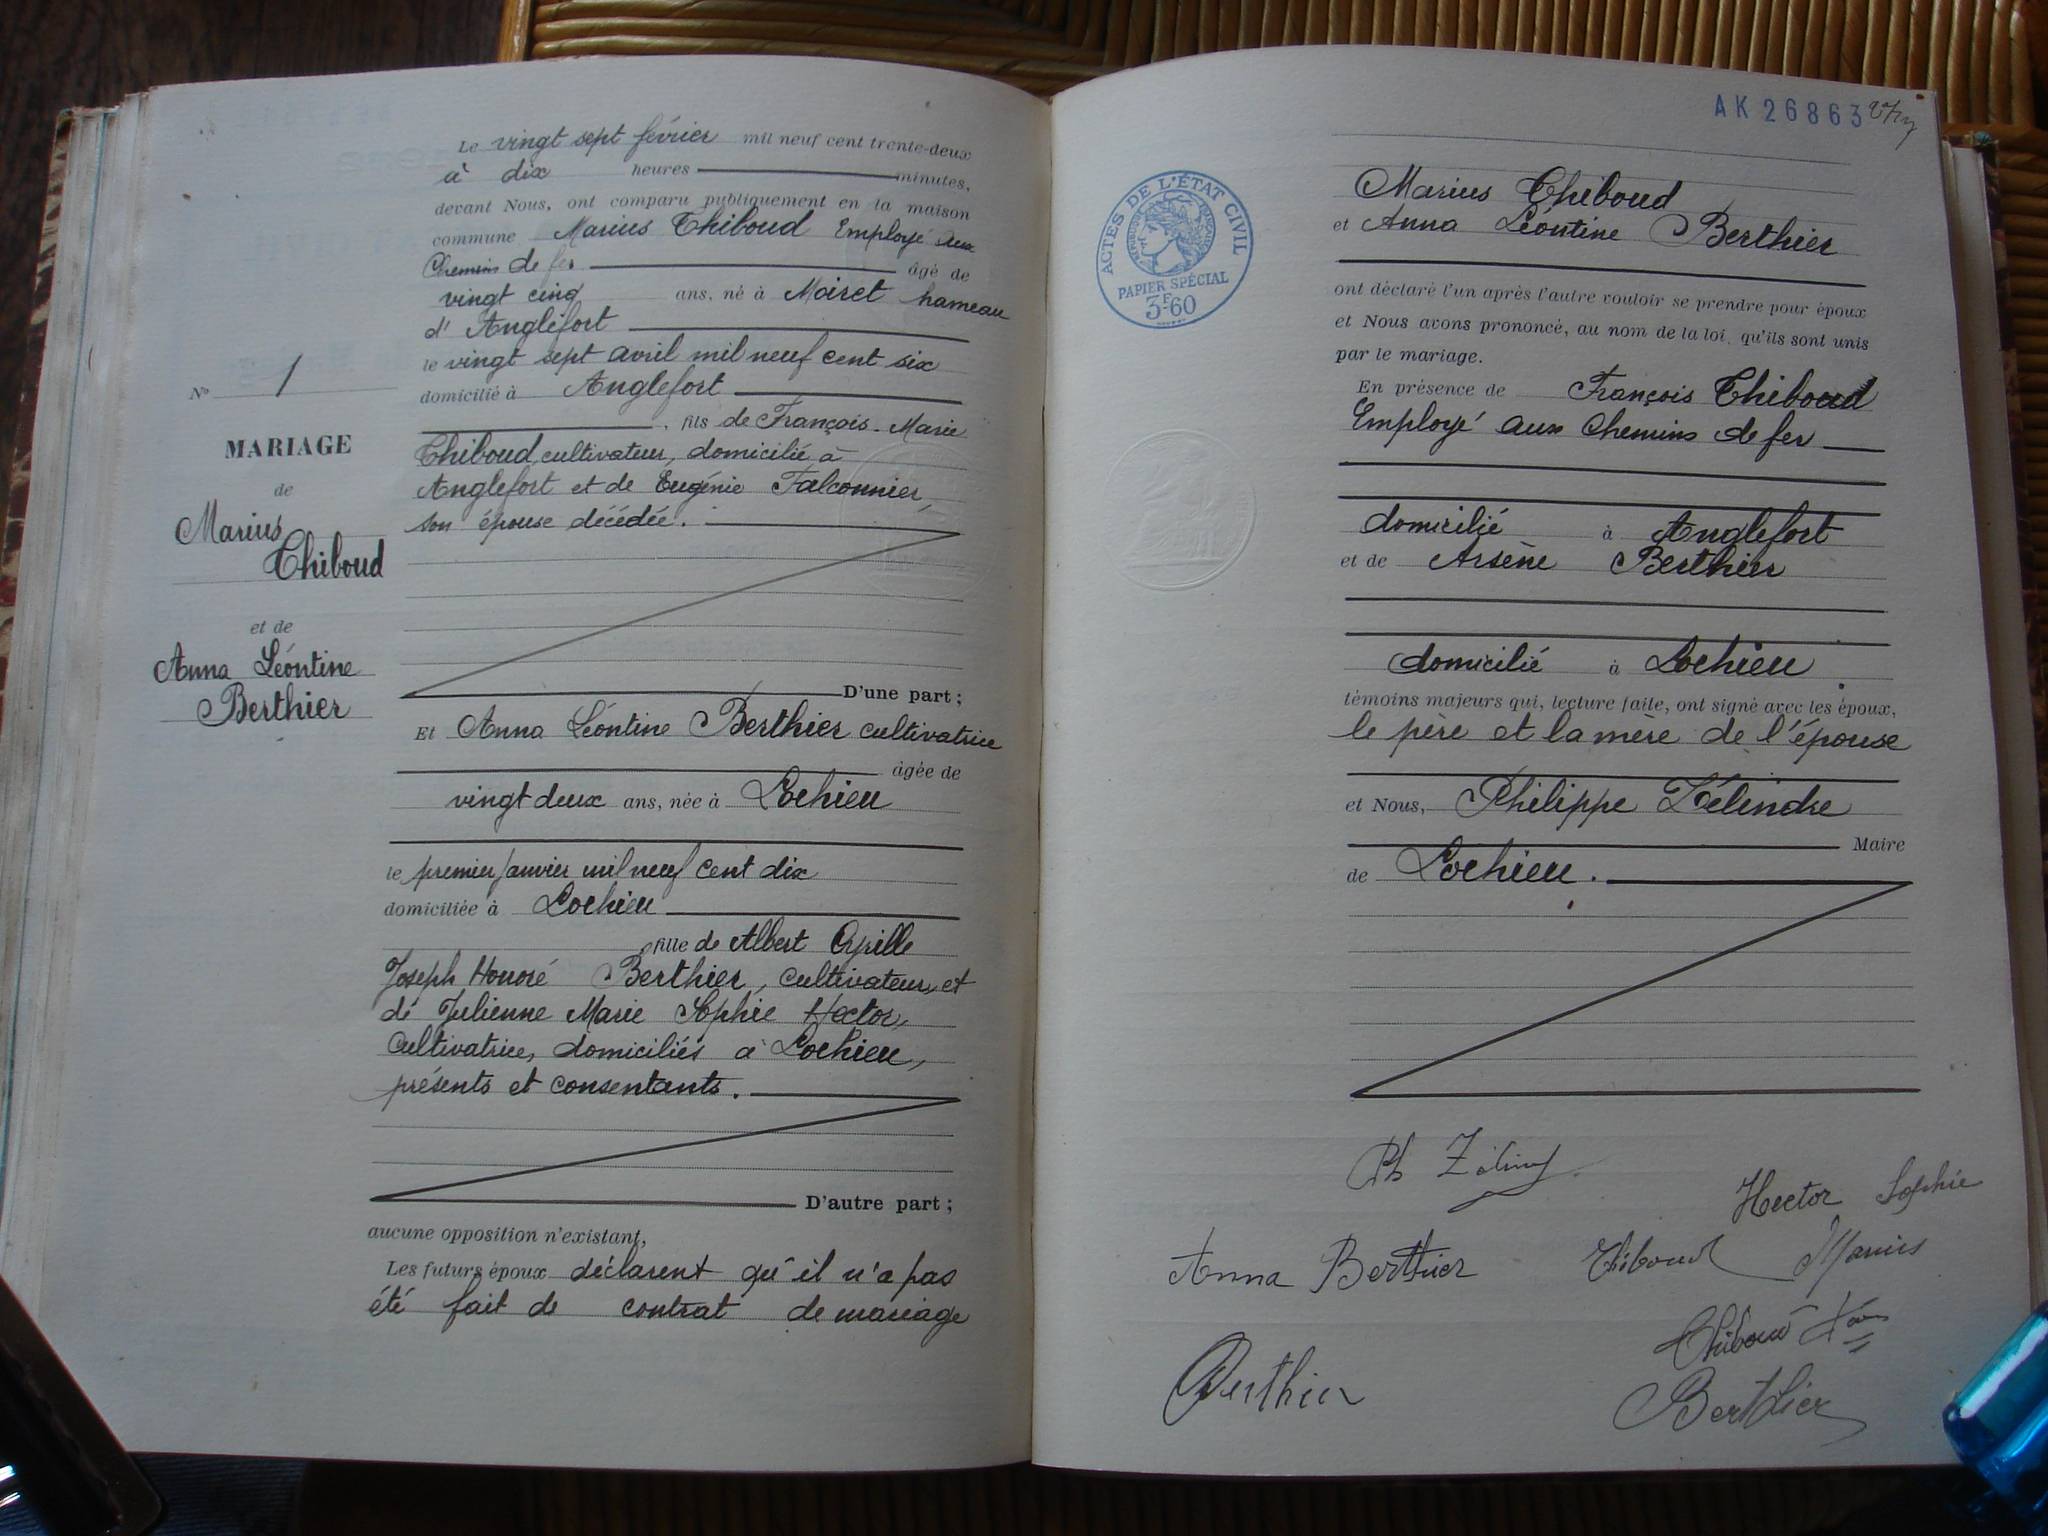 Le vingt sept février mil neuf cent trente-deux
à dix heures minutes,
devant Nous, ont comparu publiquement en la maison
commune Marius Thiboud Employé aux
Chemins de fer âgé de
vingt cinq ans, né à Moiret hameau
d'Anglefort
le vingt sept avril mil neuf cent six
domicilié à Anglefort
, fils de François-Marie
Thiboud, cultivateur, domicilié à
Anglefort et de Eugénie Falconnier,
son épouse décédée.
D'une part ;
Nº 1
MARIAGE
de
Marius
Thiboud
et de
Anna Léontine
Berthier
Et Anna Léontine Berthier cultivatrice
âgée de
vingt deux ans, née à Lochieu
le premier janvier mil neuf cent dix
domiciliée à Lochieu
fille de Albert Cyrille
Joseph Honoré Berthier, cultivateur, et
de Julienne Marie Sophie Hector,
cultivatrice, domiciliés à Lochieu,
présents et consentants.
D'autre part ;
aucune opposition n'existant,
Les futurs époux déclarent qu'il n'a pas
été fait de contrat de mariage
AK 26863
ACTES DE L'ÉTAT CIVIL
RÉPUBLIQUE FRANÇAISE
PAPIER SPÉCIAL
3F60
Marius Thiboud
et Anna Léontine Berthier
ont déclaré l'un après l'autre vouloir se prendre pour époux
et Nous avons prononcé, au nom de la loi, qu'ils sont unis
par le mariage.
En présence de François Thiboud
Employé aux Chemins de fer
domicilié à Anglefort
et de Arsène Berthier
domicilié à Lochieu
témoins majeurs qui, lecture faite, ont signé avec les époux,
le père et la mère de l'épouse
et Nous, Philippe Zélindre
Maire
de Lochieu.
Ph
Hector Sophie
Anna Berthier Thiboud Marius
Thiboud
Berthier
Berthier